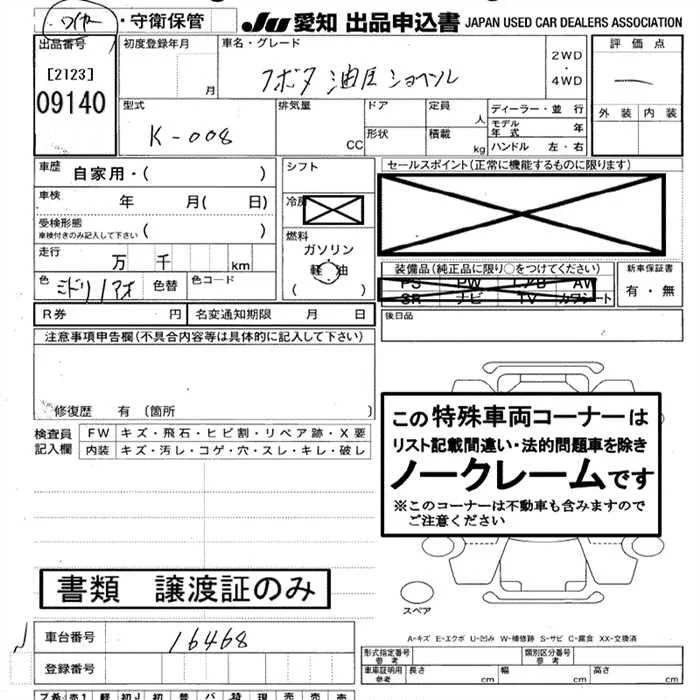 ・守衛保管
JU 愛知 出品申込書 JAPAN USED CAR DEALERS ASSOCIATION
出品番号 初度登録年月 車名・グレード 2WD・4WD 評価点
[2123]
09140
月
クボタ 油圧ショベル
一
外装 内装
型式 排気量 ドア 定員 人 ディーラー・並行
K-008
モデル年式 年
CC 形状 積載 kg ハンドル 左・右
車歴 自家用・( ) シフト セールスポイント(正常に機能するものに限ります)
車検 年 月( 日) 冷房
受検形態 ( )
車検付きのみ記入して下さい
燃料
ガソリン
軽油
( )
走行 万 千 km
装備品(純正品に限り○をつけてください) 新車保証書
PS PW エアB AW
SR ナビ TV カワシート
有・無
色 ミドリ/アオ 色替 色コード
R券 円 名変通知期限 月 日 後日品
注意事項申告欄(不具合内容等は具体的に記入して下さい)
修復歴 有 〔箇所 〕
検査員記入欄 FW キズ・飛石・ヒビ割・リペア跡・X要
内装 キズ・汚レ・コゲ・穴・スレ・キレ・破レ
この特殊車両コーナーは
リスト記載間違い・法的問題車を除き
ノークレームです
※このコーナーは不動車も含みますので
ご注意ください
書類 譲渡証のみ
スペア
A-キズ E-エクボ U-凹み W-補修跡 S-サビ C-腐食 XX-交換済
車台番号 16468
登録番号
形式指定番号 参考 類別区分番号 参考
車庫証明用 参考 長さ cm 幅 cm 高さ cm